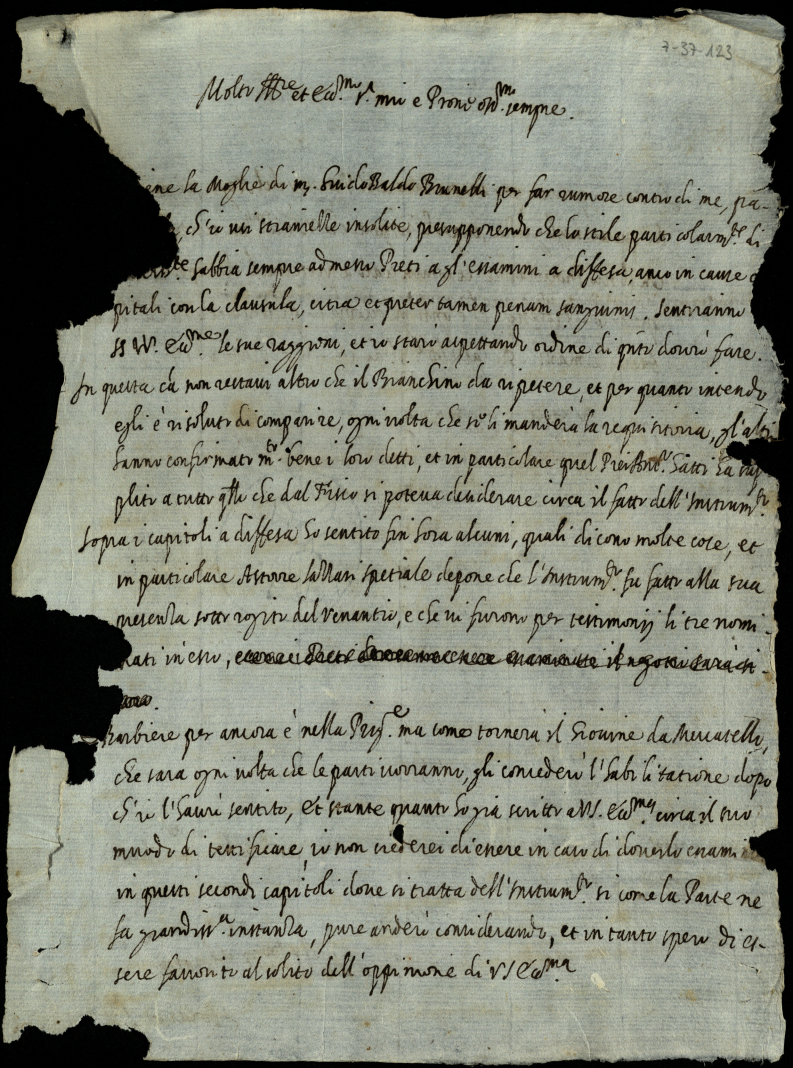 7-37-123
Molto Ill.re et Ecc.mo S.r mio e Prone oss.mo sempre.
ene la Moglie di m. Guido Baldo Brunelli per far rumore contro di me, pa-
, ch'io usi stranielle insolite, presupponendo che lo stile particolarm.te di
habbia sempre admesso Preti a gl'essamini a diffesa, anco in cause
pitali con la clausula, citra et preter tamen penam sanguinis. Sentiranno
SS VV. Ecc.me le sue raggioni, et io starò aspettando ordine di q.nto dovrò fare.
In questa cā non restavi altro che il Bianchino da ripetere, et per quanto intendo
egli è risoluto di comparire, ogni volta che se li manderà la requisitoria, gl'altri
hanno confirmato m.to bene i loro detti, et in particolare quel Pier Ant.o Gatti ha sup
plito a tutto q.llo che dal Fisco si poteva desiderare circa il fatto dell'Instrum.to
Sopra i capitoli a diffesa ho sentito fin hora alcuni, quali dicono molte cose, et
in particolare Astorre spetiale depone che l'Instrum.to fu fatto alla sua
presenza sotto rogito del Venantio, e che vi furono per testimonij li tre nomi
nati in esso, il negotio sarà
barbiere per ancora è nella Prig.e ma come tornerà il Giovine da Mercatello,
che sara ogni volta che le parti vorranno, gli concederò l'habilitatione dopo
ch'io l'haurò sentito, Et stante quanto ho già scritto a VS. Ecc.ma circa il suo
muodo di testificare, io non crederei di essere in caso di doverlo essami
in questi secondi capitoli dove si tratta dell'Instrum.to si come la Parte ne
fa grandiss.a instanza, pure anderò considerando, et in tanto spero di es-
sere favorito al solito dell'oppinione di VS Ecc.ma